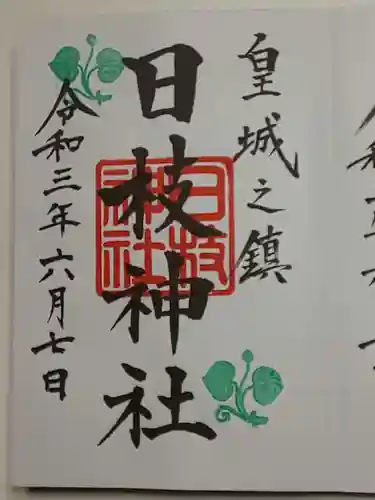 皇城之鎮
日枝神社
日枝神社
令和三年六月七日